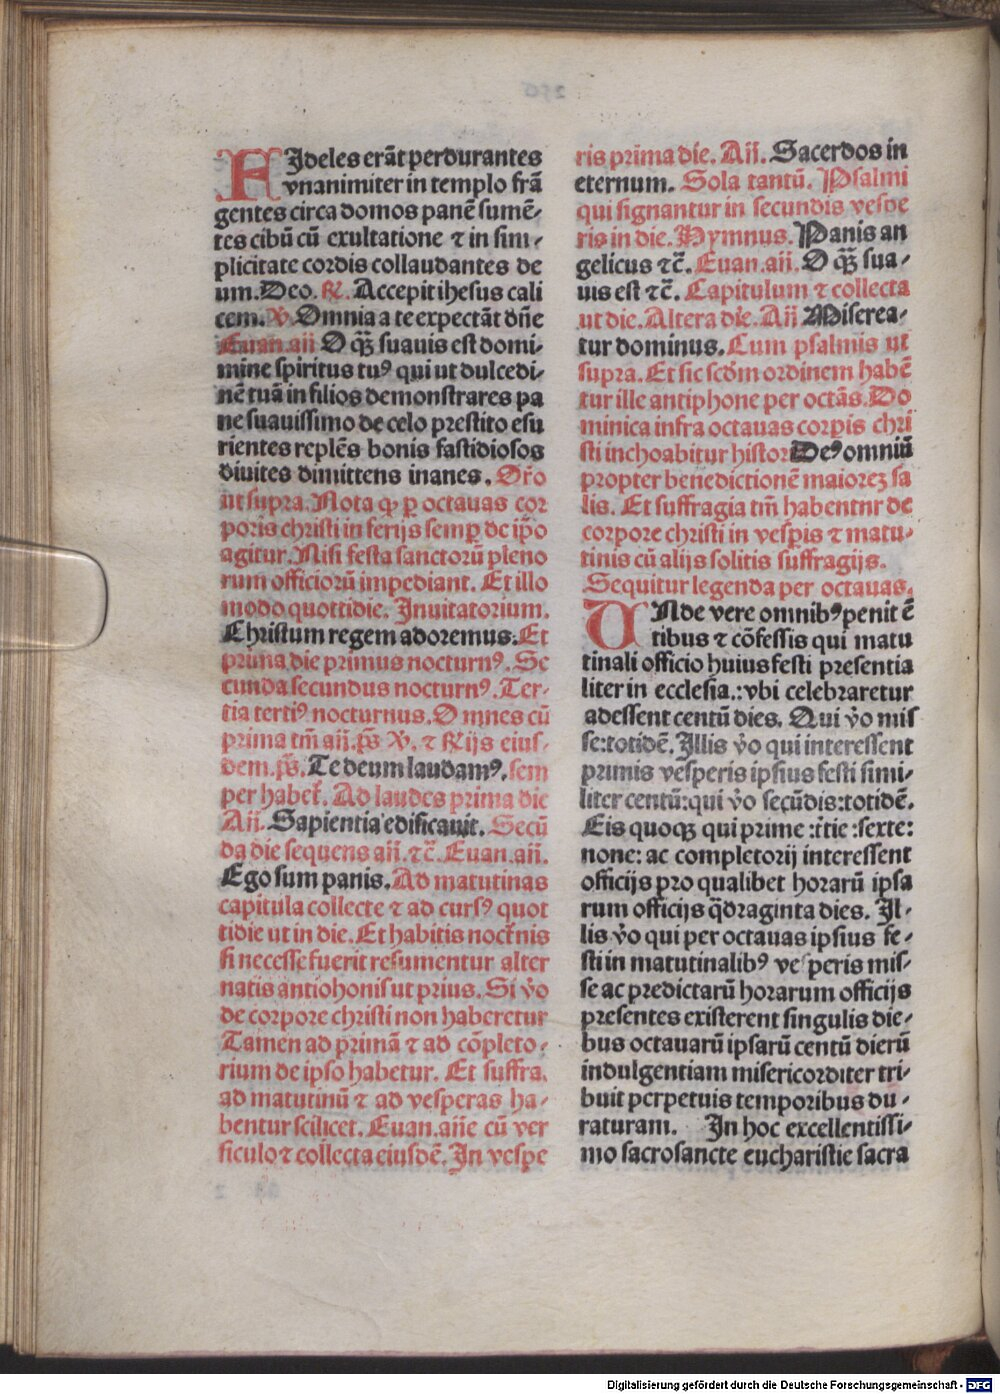 FIdeles erãt perdurantes
vnanimiter in templo frã
gentes circa domos panẽ sumẽ-
tes cibũ cũ exultatione ⁊ in sim-
plicitate cordis collaudantes de
um. Deo. ℟. Accepit ihesus cali
cem. ℣. Omnia a te expectãt dñe
Euan. añ O q̃ꝫ suauis est domi-
mine spiritus tuꝰ qui ut dulcedi-
nẽ tuã in filios demonstrares pa
ne suauissimo de celo prestito esu
rientes replẽs bonis fastidiosos
diuites dimittens inanes. Oro
ut supra. Nota ꝙ ꝑ octauas cor
poris christi in ferijs semꝑ de ip̃o
agitur. Nisi festa sanctorũ pleno
rum officiorũ impediant. Et illo
modo quottidie. Inuitatorium.
Christum regem adoremus. Et
prima die primus nocturnꝰ. Se
cunda secundus nocturnꝰ. Ter-
tia tertiꝰ nocturnus. Omnes cũ
prima tm̃ añ. p̃s ℣. ⁊ ℟ijs eius-
dem. p̃s. Te deum laudamꝰ. sem
per habet̃. Ad laudes prima die
Añ. Sapientia edificauit. Secũ
da die sequens añ. ⁊c̃. Euan. añ.
Ego sum panis. Ad matutinas
capitula collecte ⁊ ad cursꝰ quot
tidie ut in die. Et habitis noct̃nis
si necesse fuerit resumentur alter
natis antiohonis ut prius. Si ṽo
de corpore christi non haberetur
Tamen ad primã ⁊ ad cõpleto-
rium de ipso habetur. Et suffra.
ad matutinũ ⁊ ad vesperas ha-
bentur scilicet. Euan. añe cũ ver
siculo ⁊ collecta eiusdẽ. In vespe
ris prima die. Añ. Sacerdos in
eternum. Sola tantũ. Psalmi
qui signantur in secundis vespe
ris in die. Hymnus. Panis an
gelicus ⁊c̃. Euan. añ. O q̃ꝫ sua-
uis est ⁊c̃. Capitulum ⁊ collecta
ut die. Altera die. Añ Miserea-
tur dominus. Cum psalmis ut
supra. Et sic scd̃m ordinem habẽ
tur ille antiphone per octãs. Do
minica infra octauas corpis chri
sti inchoabitur histor Deꝰ omniũ
propter benedictionẽ maioreꝫ sa
lis. Et suffragia tm̃ habentnr de
corpore christi in vesꝑis ⁊ matu-
tinis cũ alijs solitis suffragijs.
Sequitur legenda per octauas.
UNde vere omnibꝰ penit ẽ
tibus ⁊ cõfessis qui matu
tinali officio huius festi presentia
liter in ecclesia.: vbi celebraretur
adessent centũ dies. Qui ṽo mis
se: totidẽ. Illis ṽo qui interessent
primis vesperis ipsius festi simi-
liter centũ: qui ṽo secũdis: totidẽ.
Eis quoqꝫ qui prime : t̃tie : sexte:
none: ac completorij interessent
officijs pro qualibet horarũ ipsa
rum officijs q̃draginta dies. Il-
lis ṽo qui per octauas ipsius fe-
sti in matutinalibꝰ vesperis mis-
se ac predictarũ horarum officijs
presentes existerent singulis die-
bus octauarũ ipsarũ centũ dierũ
indulgentiam misericorditer tri-
buit perpetuis temporibus du-
raturam. In hoc excellentissi-
mo sacrosancte eucharistie sacra
Digitalisierung gefördert durch die Deutsche Forschungsgemeinschaft - DFG